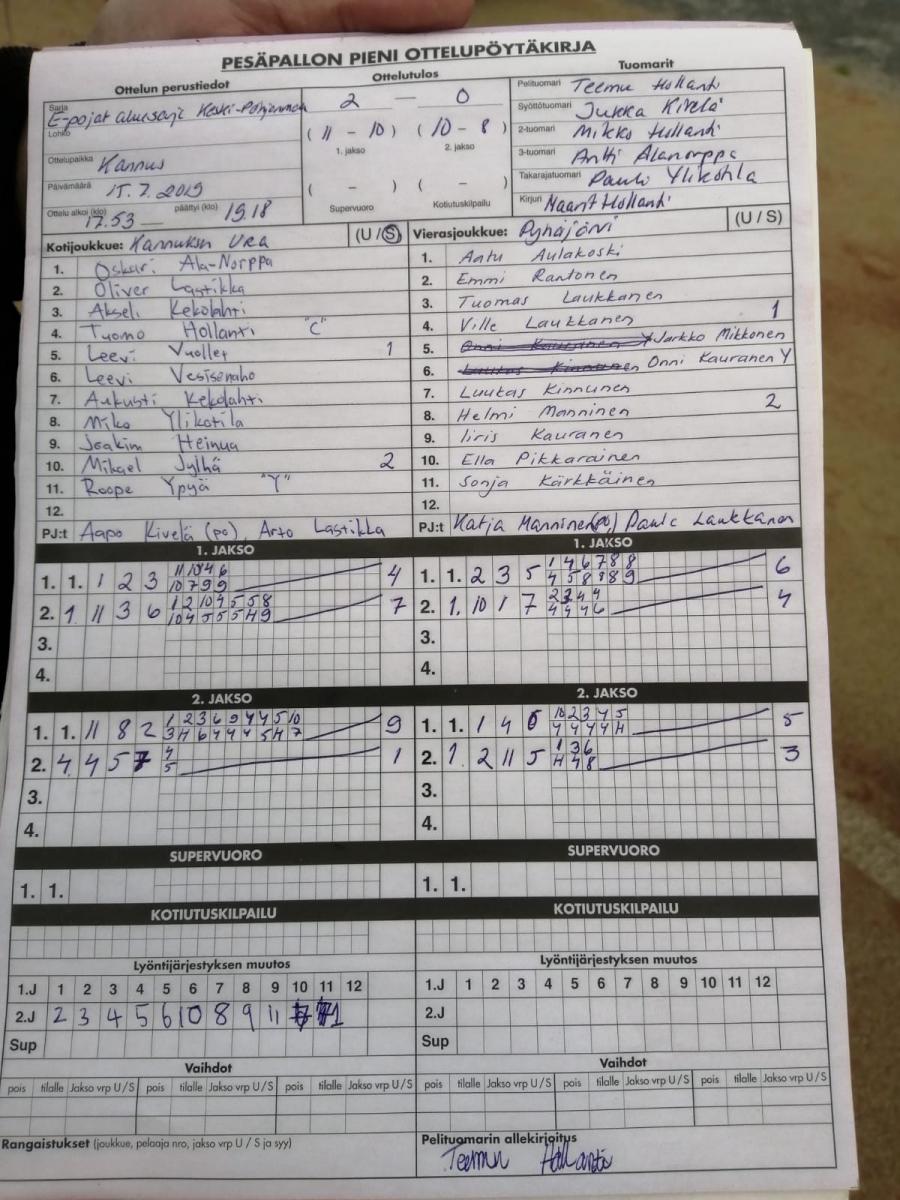 PESÄPALLON PIENI OTTELUPÖYTÄKIRJA
Ottelun perustiedot
Sarja E-pojat aluesarja Keski-Pohjanmaa
Lohko
Ottelupaikka Kannus
Päivämäärä 15.7.2019
Ottelu alkoi (klo) 17.53 päättyi (klo) 19.18
Ottelutulos
2 — 0
( 11 - 10 ) ( 10 - 8 )
1. jakso 2. jakso
( - ) ( - )
Supervuoro Kotiutuskilpailu
Tuomarit
Pelituomari Teemu Hollanti
Syöttötuomari Jukka Kivelä
2-tuomari Mikko Hollanti
3-tuomari Antti Alanorppa
Takarajatuomari Pauli Ylikotila
Kirjuri Maarit Hollanti
Kotijoukkue: Kannuksen Ura (U / S)
1. Oskari Ala-Norppa
2. Oliver Lastikka
3. Akseli Kekolahti
4. Tuomo Hollanti "C"
5. Leevi Vuollet 1
6. Leevi Vesisenaho
7. Aukusti Kekolahti
8. Miko Ylikotila
9. Joakim Heinua
10. Mikael Jylhä 2
11. Roope Ypyä "Y"
12.
PJ:t Aapo Kivelä (po), Arto Lastikka
Vierasjoukkue: Pyhäjärvi (U / S)
1. Aatu Aulakoski
2. Emmi Rantonen
3. Tuomas Laukkanen
4. Ville Laukkanen 1
5. Jarkko Mikkonen
6. Onni Kauranen Y
7. Luukas Kinnunen
8. Helmi Manninen 2
9. Iiris Kauranen
10. Ella Pikkarainen
11. Sonja Kärkkäinen
12.
PJ:t Katja Manninen (po) Laukkanen
1. JAKSO
1. 1. 1 2 3 4
11 10 4 6
10 7 9 9
2. 1 11 3 6 7
1 2 10 4 5 5 8
10 4 5 5 5 4 9
3.
4.
1. JAKSO
1. 1. 2 3 5 6
1 4 6 7 8 8
4 5 8 8 8 9
2. 1. 10 1 7 4
2 2 4 4
4 4 4 6
3.
4.
2. JAKSO
1. 1. 11 8 2 9
1 2 3 6 9 4 4 5 10
3 4 6 4 4 4 5 4 7
2. 4 4 5 7 1
4
5
3.
4.
2. JAKSO
1. 1. 1 4 6 5
10 2 3 4 5
4 4 4 4 4
2. 1. 2 11 5 3
1 3 6
4 4 8
3.
4.
SUPERVUORO
1. 1.
SUPERVUORO
1. 1.
KOTIUTUSKILPAILU
KOTIUTUSKILPAILU
Lyöntijärjestyksen muutos
1.J 1 2 3 4 5 6 7 8 9 10 11 12
2.J 2 3 4 5 6 10 8 9 11 7 1
Sup
Lyöntijärjestyksen muutos
1.J 1 2 3 4 5 6 7 8 9 10 11 12
2.J
Sup
Vaihdot
pois tilalle Jakso vrp U / S pois tilalle Jakso vrp U / S pois tilalle Jakso vrp U / S
Vaihdot
pois tilalle Jakso vrp U / S pois tilalle Jakso vrp U / S pois tilalle Jakso vrp U / S
Rangaistukset (joukkue, pelaaja nro, jakso vrp U / S ja syy)
Pelituomarin allekirjoitus
Teemu Hollanti